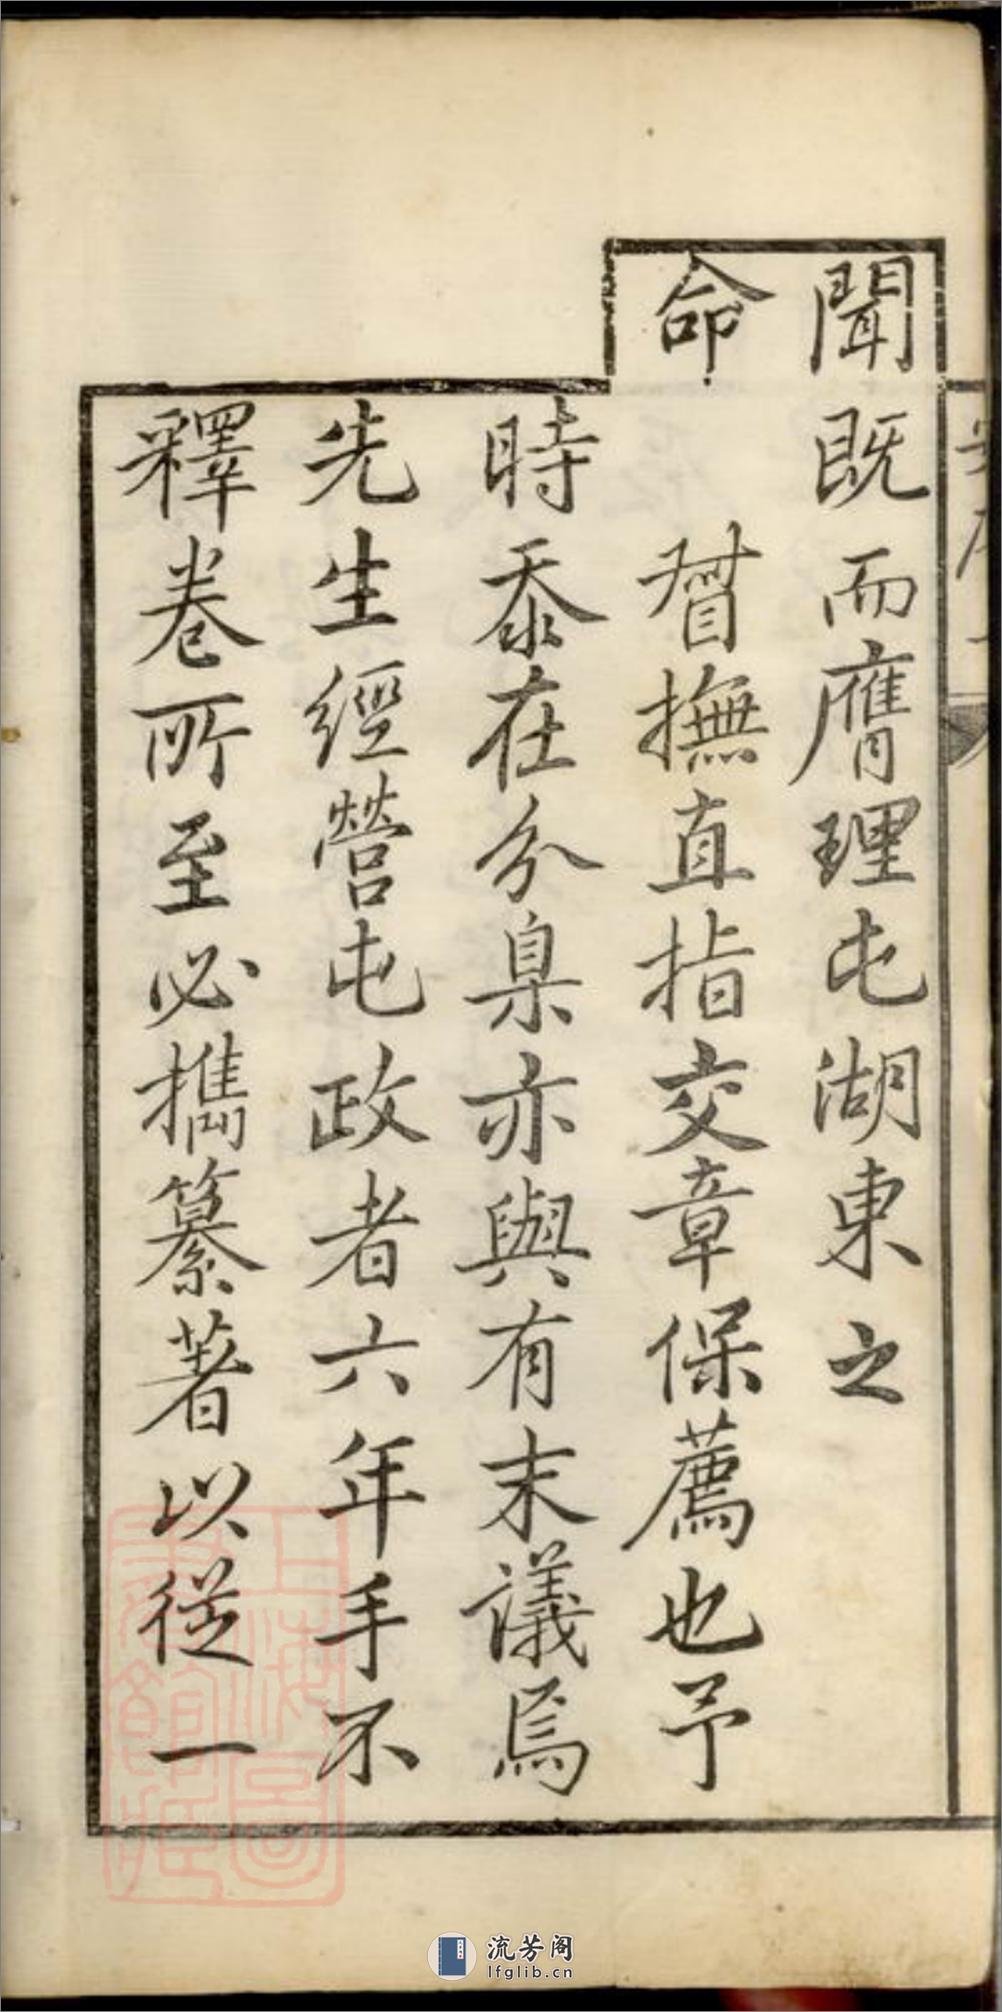 聞既而膺理屯湖東之
命
督撫直指交章保薦也予
時忝在分臬亦與有末議焉
先生經營屯政者六年手不
釋卷所至必攜纂著以從一
上海圖書館藏
流芳阁
lfglib.cn